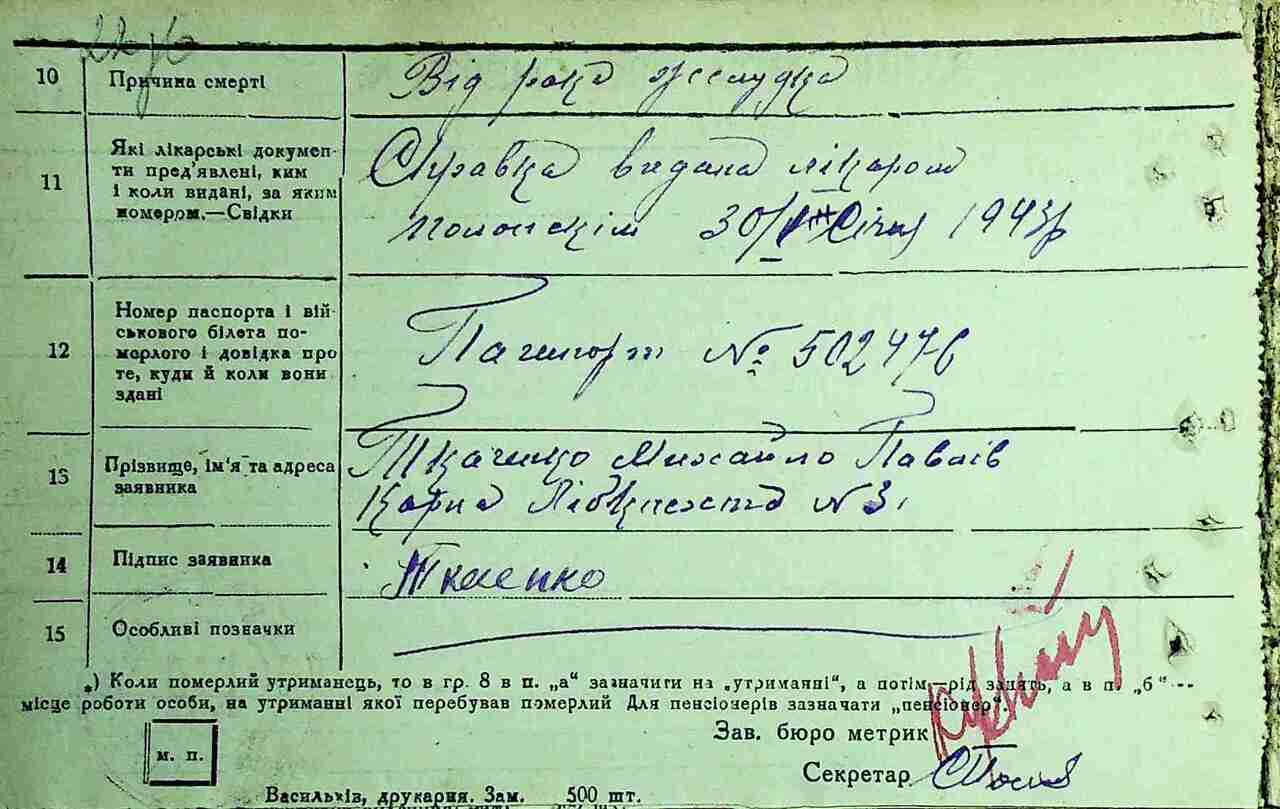 10 Причина смерті Від рака желудка
11 Які лікарські документи пред'явлені, ким і коли видані, за яким номером.—Свідки
Справка видана лікаром
30/I Січня 1943р
12 Номер паспорта і військового білета померлого і довідка про те, куди й коли вони здані
Пашпорт № 502476
13 Прізвище, ім'я та адреса заявника
Ткаченко Михайло Павлів
№ 3.
14 Підпис заявника Ткаченко
15 Особливі позначки
*) Коли померлий утриманець, то в гр. 8 в п. „а" зазначити на „утриманні", а потім—рід занять, а в п. „б"—
місце роботи особи, на утриманні якої перебував померлий Для пенсіонерів зазначати „пенсіонер".
Зав. бюро метрик
м. п.
Секретар
Васильків, друкарня. Зам. 500 шт.